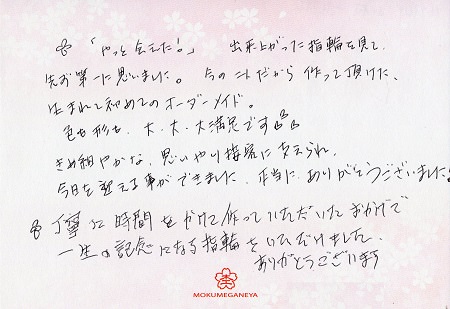 「やっと会えた!」 出来上がった指輪を見て、
先ず第一に思いました。今の二人だから作って頂けた、
生まれて初めてのオーダーメイド。
色も形も、大・大・大満足です
きめ細やかな、思いやり接客に支えられ、
今日を迎える事ができました。本当に、ありがとうございました。
丁寧に時間をかけて作っていただいたおかげで
一生の記念になる指輪をいただけました。
ありがとうございます
MOKUMEGANEYA